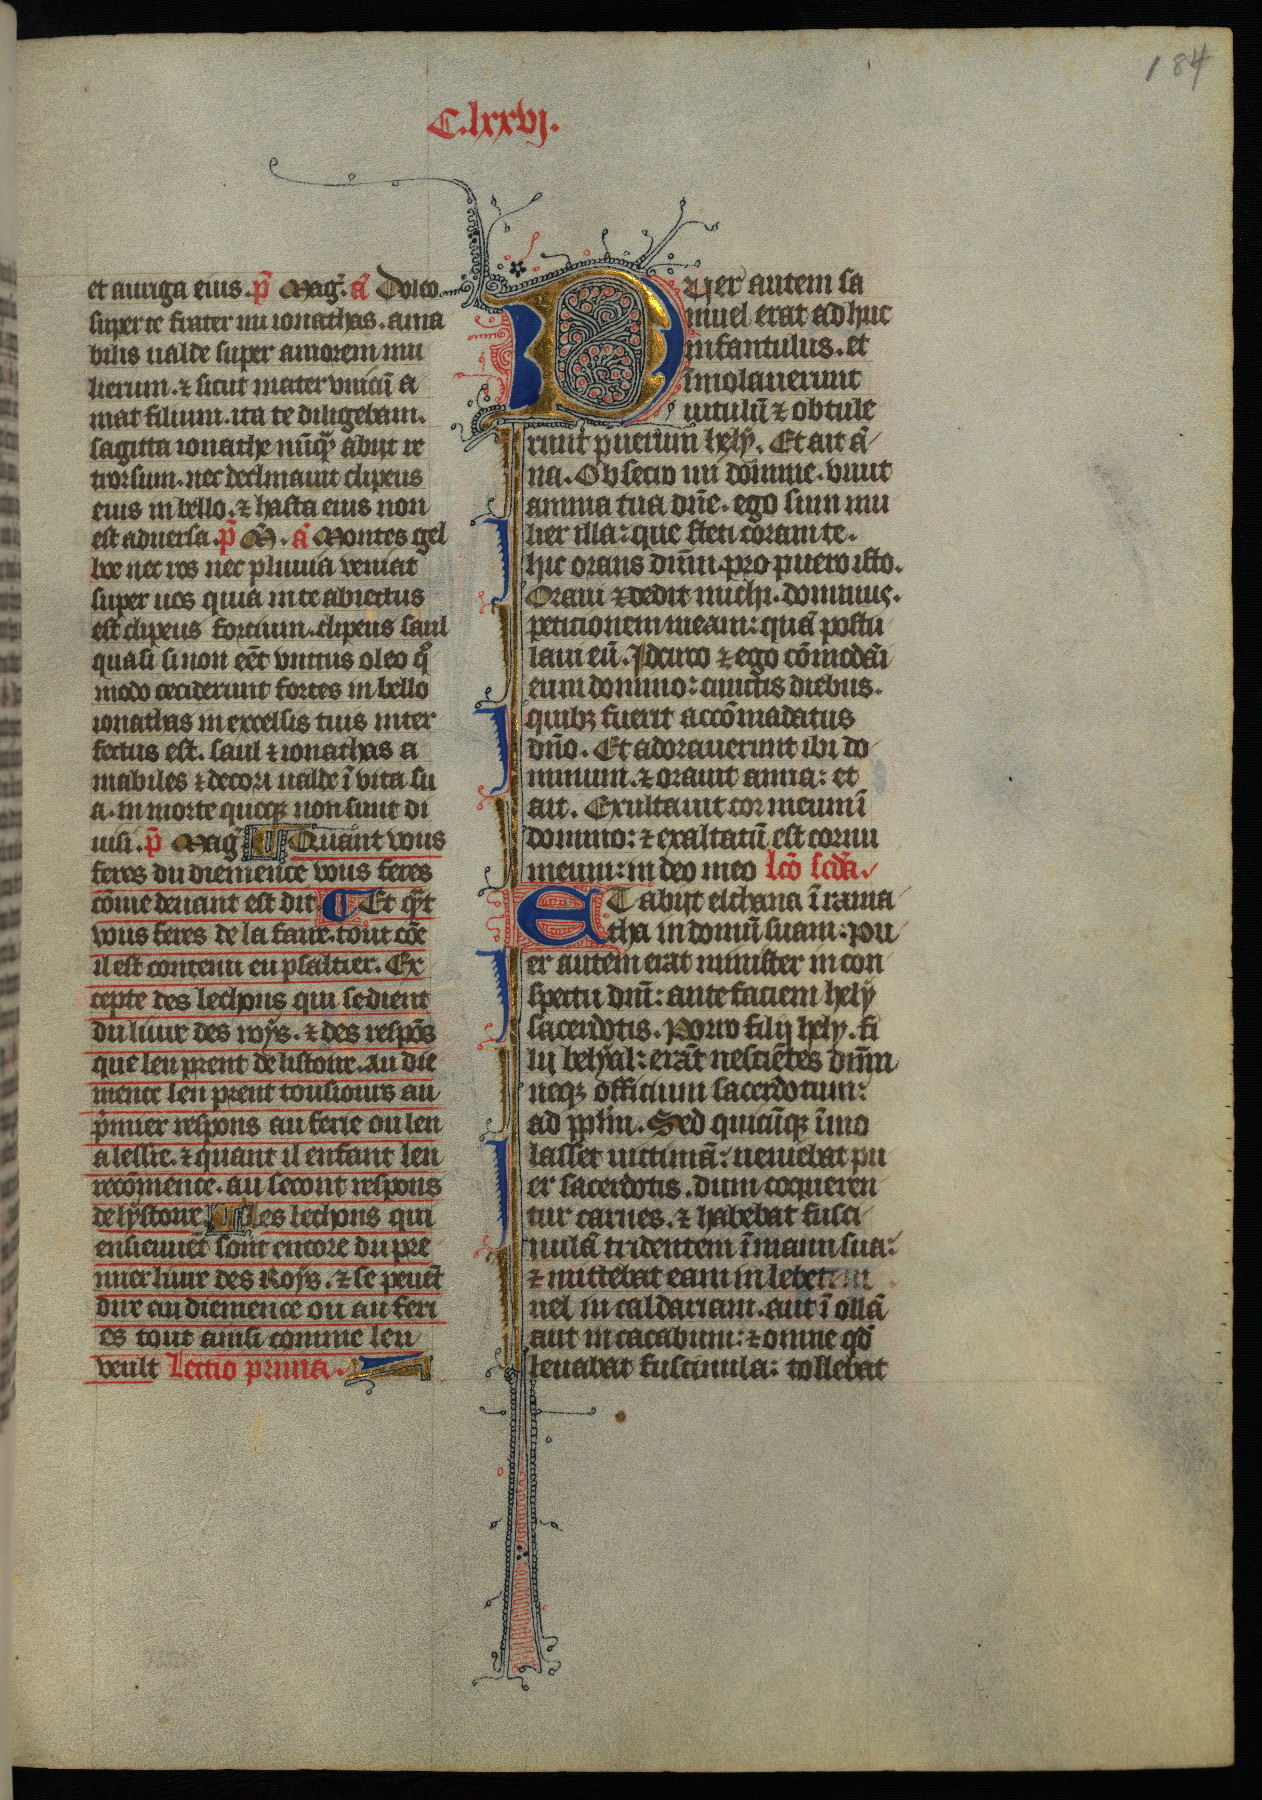 184
C.lxxvj.
et auriga eius. p̄ Mag᷑. a᷑ Doleo
super te frater mi ionathas. ama
bilis ualde super amorem mu
lierum. ⁊ sicut mater vnicū a
mat filium. ita te diligebam.
sagitta ionathe nūq̄ abiit re
trorsum. nec declinauit clipeus
eius in bello. ⁊ hasta eius non
est aduersa. p̄ M̄. a᷑ Montes gel
boe nec ros nec pluuia veniat
super uos quia in te abiectus
est clipeus fortium. clipeus saul
quasi si non eēt vnctus oleo qͦ
modo ceciderunt fortes in bello
ionathas in excelsis tuis inter
fectus est. saul ⁊ ionathas a
mabiles ⁊ decori ualde ī vita su
a. in morte quoqꝫ non sunt di
uisi. p̄ Mag᷑ Quant vous
feres du diemence vous feres
cōme deuant est dit Et qͣt
vous feres de la faire. tout cōe
il est contenu eu psaltier. Ex
cepte des lechons qui sedient
du liure des roys. ⁊ des respōs
que len prent de listoire. Au die
mence len prent tousiours au
p̄mier respons au ferie ou len
a lessie. ⁊ quant il enfant len
recōmence. au secont respons
de lystoire Les lechons qui
ensieuuēt sont encore du pre
mier liure des Roys. ⁊ se peuēt
dire au diemence ou au feri
es tout ainsi comme len
veult Lectio prima.
Puer autem sa
muel erat adhuc
infantulus. et
īmolauerunt
uitulū ⁊ obtule
runt puerum hely. Et ait ā
na. Obsecro mi domine. viuit
anima tua dn̄e. ego sum mu
lier illa: que steti coram te.
hic orans dn̄m. pro puero isto.
Oraui ⁊ dedit michi. dominus.
peticionem meam: quā postu
laui eū. Idcirco ⁊ ego cōmodaui
eum domino: cunctis diebus.
quibꝫ fuerit accōmadatus
dn̄o. Et adorauerunt ibi do
minum. ⁊ orauit anna: et
ait. Exultauit cor meum ī
domino: ⁊ exaltatū est cornu
meum: in deo meo lcō scđa.
ET abiit elchana ī rama
tha in domū suam: pu
er autem erat minister in con
spectu dn̄i: ante faciem hely
sacerdotis. Porro filij hely. fi
lij belyal: erāt nesciētes dn̄m
neqꝫ officium sacerdotum:
ad pplm̄. Sed quicūqꝫ īmo
lasset uictimā: ueniebat pu
er sacerdotis. dum coqueren
tur carnes. ⁊ habebat fusci
nulā tridentem ī manu sua:
⁊ mittebat eam in lebetem
uel in caldariam. aut ī ollā
aut in cacabum: ⁊ omne qđ
leuabat fuscinula: tollebat